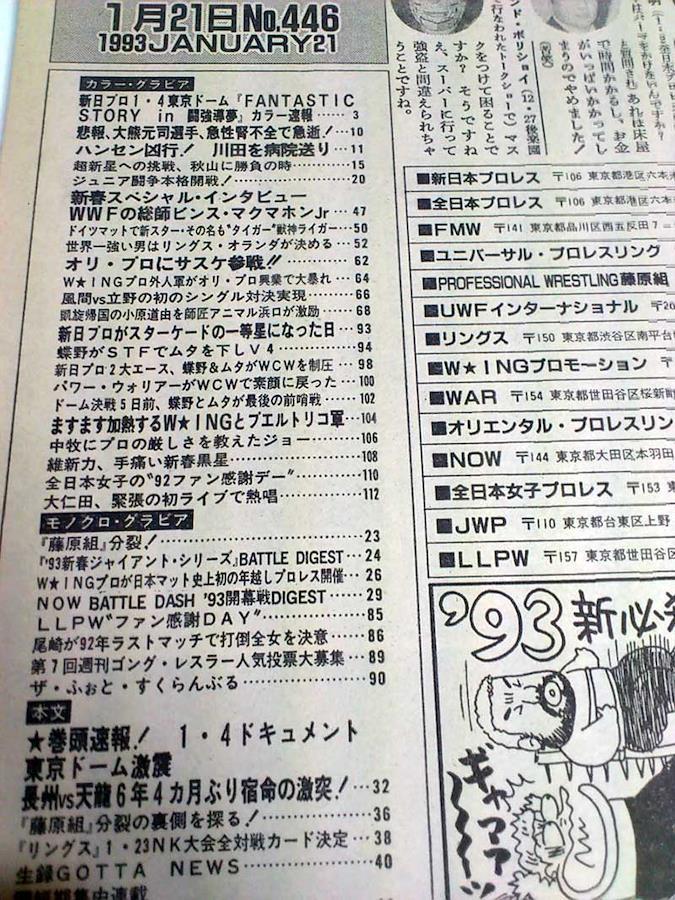 1月21日No.446
1993JANUARY21
カラー・グラビア
新日プロ1・4東京ドーム『FANTASTIC
STORY in 闘強導夢』カラー速報……3
悲報、大熊元司選手、急性腎不全で急逝!…10
ハンセン凶行! 川田を病院送り…11
超新星への挑戦、秋山に勝負の時………15
ジュニア闘争本格開戦!………20
新春スペシャル・インタビュー
WWFの総師ビンス・マクマホンJr…47
ドイツマットで新スター・その名も"タイガー"獣神ライガー…50
世界一強い男はリングス・オランダが決める…52
オリ・プロにサスケ参戦!!………62
W★INGプロ外人軍がオリ・プロ興業で大暴れ…64
風間vs立野の初のシングル対決実現……66
凱旋帰国の小原道由を師匠アニマル浜口が激励…68
新日プロがスターケードの一等星になった日…93
蝶野がSTFでムタを下しV4………94
新日プロ2大エース、蝶野&ムタがWCWを制圧…98
パワー・ウォリアーがWCWで素顔に戻った…100
ドーム決戦5日前、蝶野とムタが最後の前哨戦…102
ますます加熱するW★INGとプエルトリコ軍…104
中牧にプロの厳しさを教えたジョー……106
維新力、手痛い新春黒星………108
全日本女子の"92ファン感謝デー"………110
大仁田、緊張の初ライブで熱唱………112
モノクロ・グラビア
『藤原組』分裂!………23
『'93新春ジャイアント・シリーズ』BATTLE DIGEST…24
W★INGプロが日本マット史上初の年越しプロレス開催…26
NOW BATTLE DASH '93開幕戦DIGEST…29
LLPW"ファン感謝DAY"………85
尾崎が92年ラストマッチで打倒全女を決意…86
第7回週刊ゴング・レスラー人気投票大募集…89
ザ・ふぉと・すくらんぶる………90
本文
★巻頭速報! 1・4ドキュメント
東京ドーム激震
長州vs天龍6年4カ月ぶり宿命の激突!…32
『藤原組』分裂の裏側を探る!………36
『リングス』1・23NK大会全対戦カード決定…38
生録GOTTA NEWS………40
ンド・ボリショイ(12・27後楽園
で行なわれたトークショーで)マス
クをつけて困ることで
すか? そうですね
え、スーパーに行って
強盗と間違えられちゃ
うことですね。
あれは床屋
で時間かかるし、お金
がいっぱいかかってし
まうのでやめました!
■新日本プロレス 〒106 東京都港区六本木
■全日本プロレス 〒106 東京都港区六本
■FMW 〒141 東京都品川区西五反田7=
■ユニバーサル・プロレスリング
■PROFESSIONAL WRESTLING藤原組
■UWFインターナショナル
■リングス 〒150 東京都渋谷区南平台
■W★INGプロモーション 〒
■WAR 〒154 東京都世田谷区桜新町
■オリエンタル・プロレスリン
■NOW 〒144 東京都大田区本羽田
■全日本女子プロレス 〒153
■JWP 〒110 東京都台東区上野
■LLPW 〒157 東京都世田谷区
'93
ギャアアァ〜〜〜!